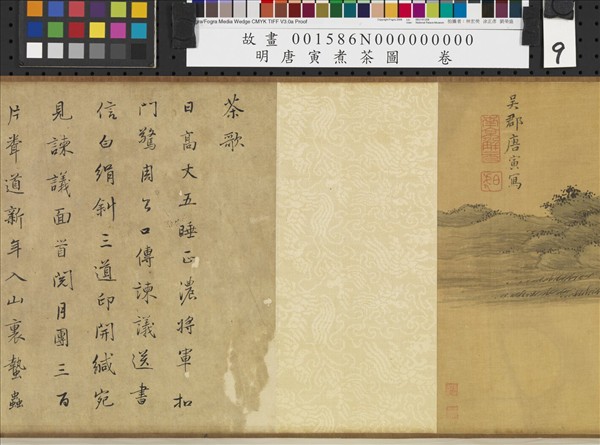 gra/Fogra Media Wedge CMYK TIFF V3.0a Proof
故畫 001586N000000000
明唐寅煮茶圖 卷
9
吳郡唐寅寫
茶歌
日高大五睡正濃將軍扣
門驚周公口傳諫議送書
信白絹斜三道印開緘宛
見諫議面首閱月團三百
片聞道新年入山裏蟄蟲